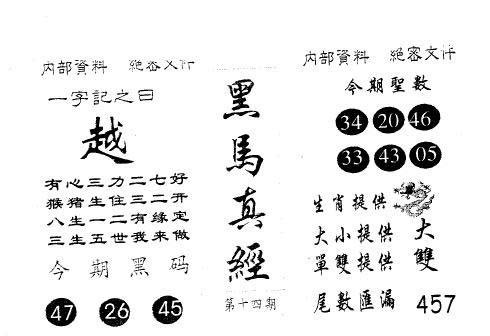 内部資料 絕密文件
一字記之曰
越
有心三力二七好
猴豬生住三二开
八生一二有缘定
三生五世我來做
今期黑码
47 26 45
黑馬真經
第十四期
内部資料 絕密文件
今期聖數
34 20 46
33 43 05
生肖提供
大小提供 大
單雙提供 雙
尾數匯漏 457